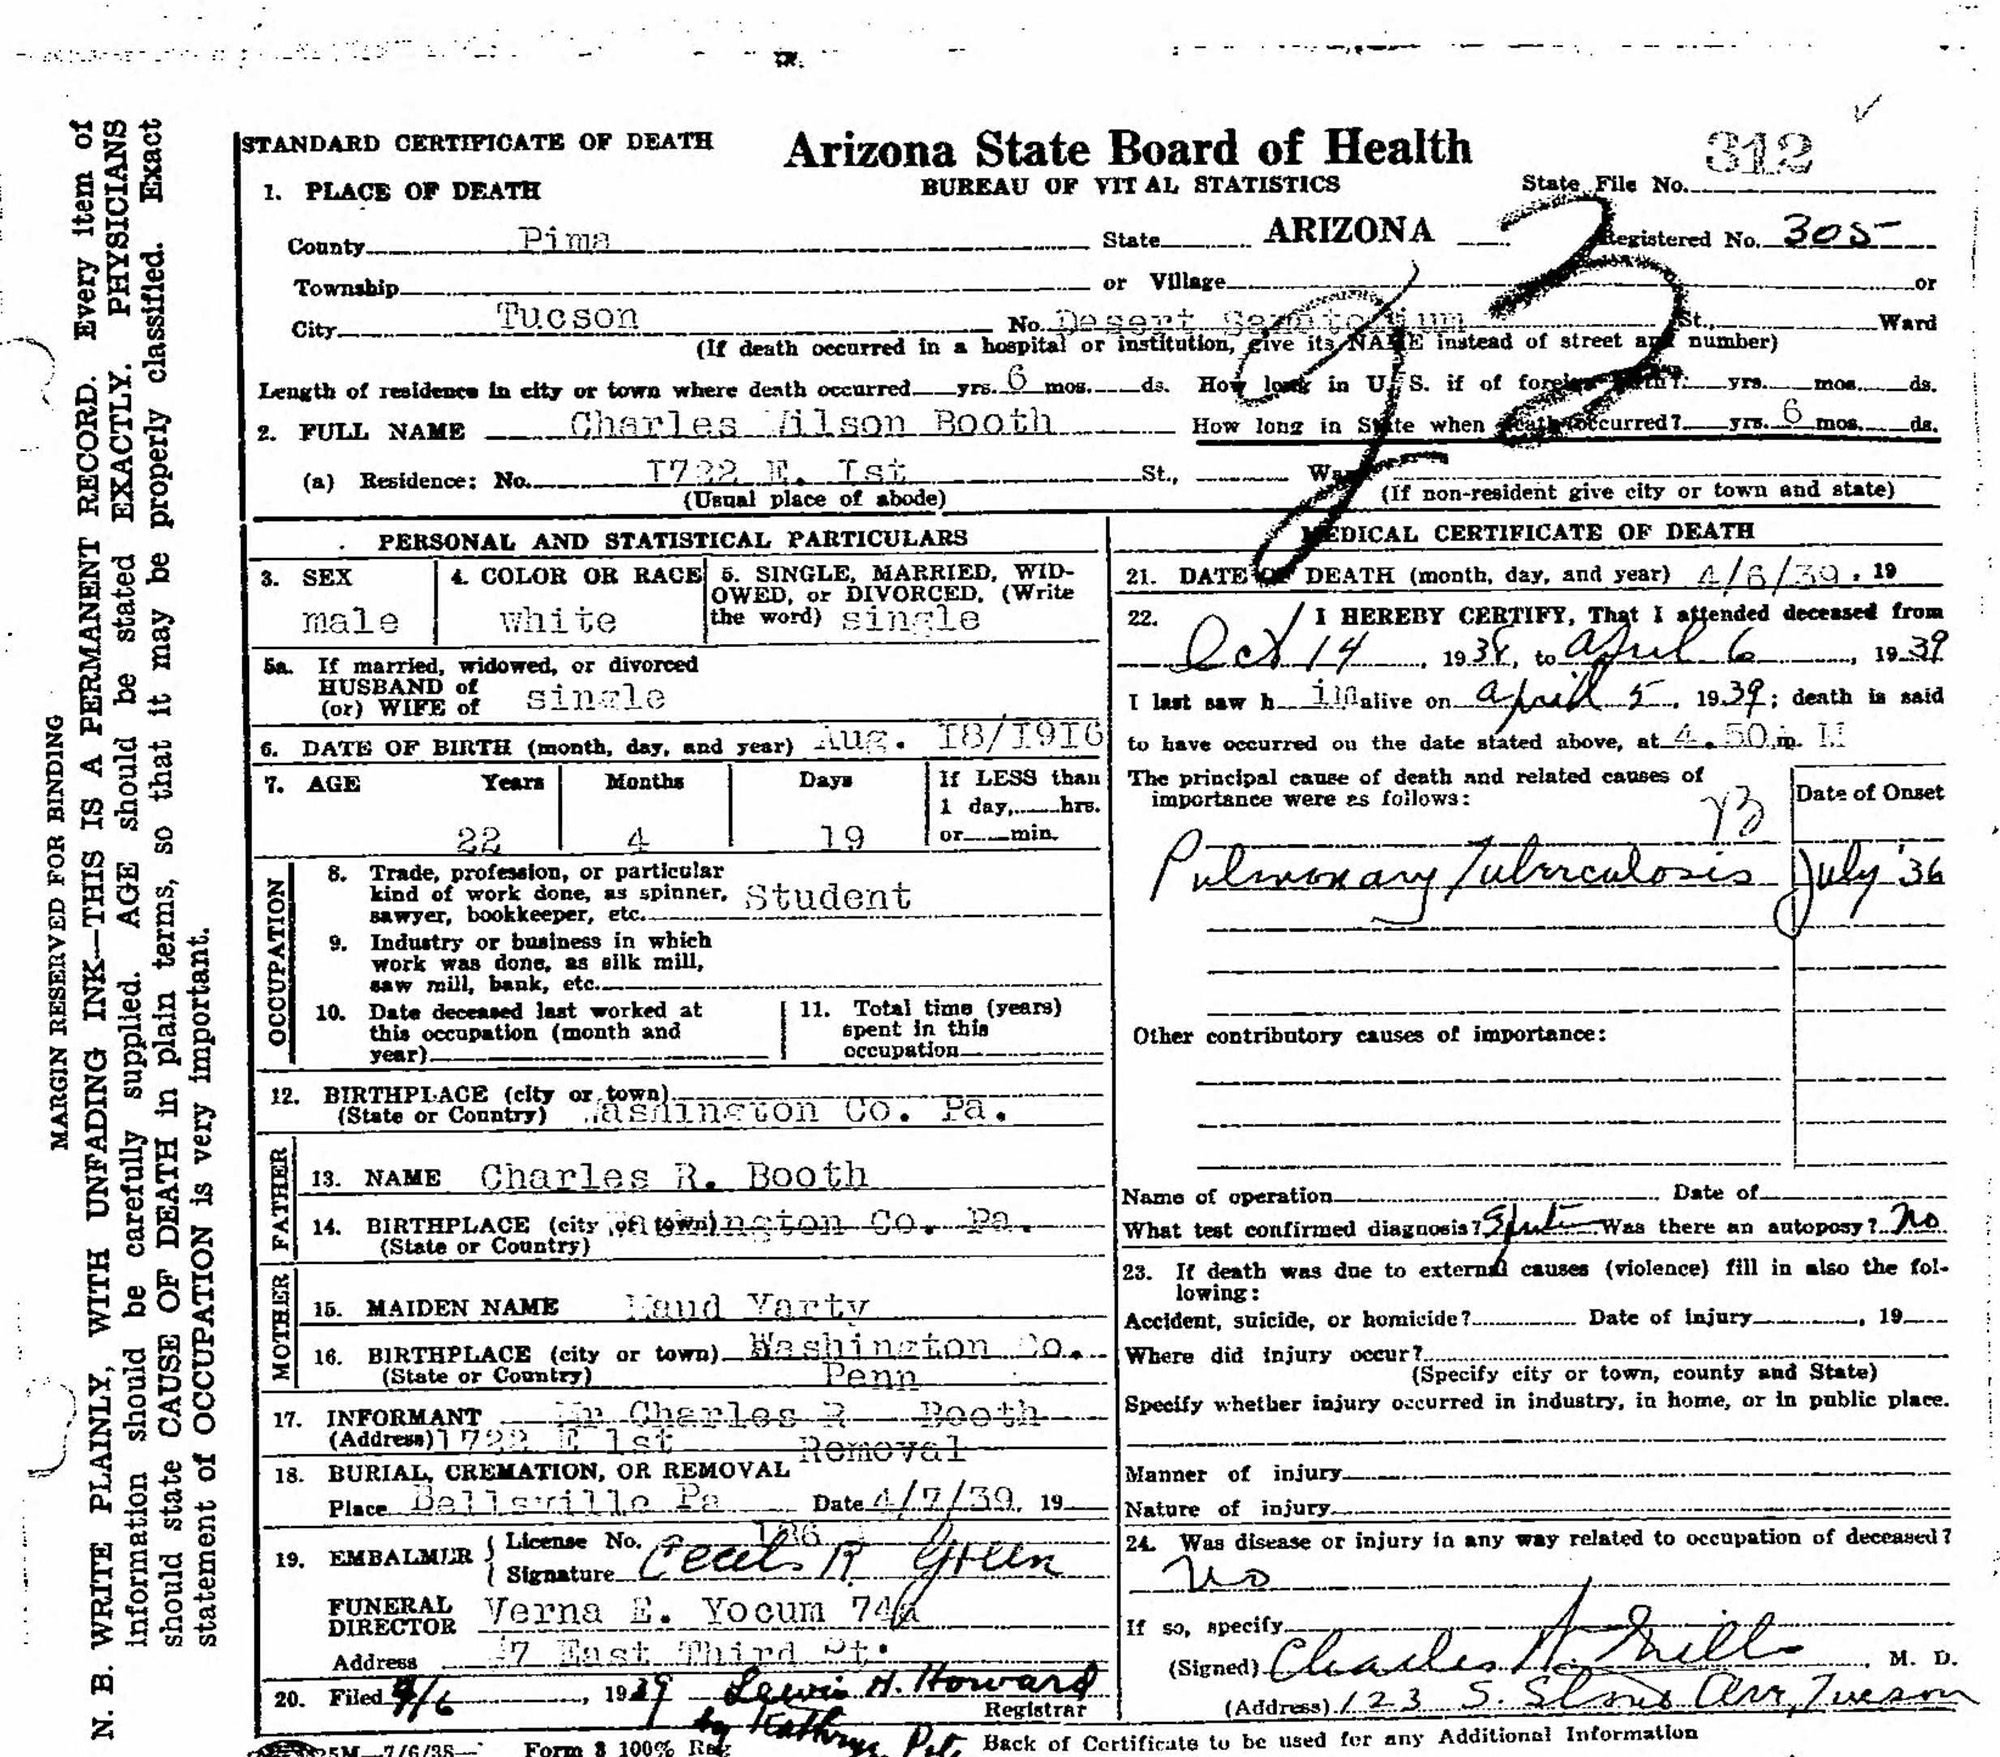 312
STANDARD CERTIFICATE OF DEATH
Arizona State Board of Health
BUREAU OF VITAL STATISTICS
State File No.
1. PLACE OF DEATH
County Pima State ARIZONA Registered No. 305
Township or Village or
City Tucson No. Desert Sanatorium St., Ward
(If death occurred in a hospital or institution, give its NAME instead of street and number)
Length of residence in city or town where death occurred yrs. 6 mos. ds. How long in U. S. if of foreign birth? yrs. mos. ds.
2. FULL NAME Charles Wilson Booth How long in State when death occurred? yrs. 6 mos. ds.
(a) Residence: No. I722 E. Ist St., Ward
(Usual place of abode) (If non-resident give city or town and state)
PERSONAL AND STATISTICAL PARTICULARS
3. SEX
male
4. COLOR OR RACE
white
5. SINGLE, MARRIED, WID-
OWED, or DIVORCED, (Write
the word) single
5a. If married, widowed, or divorced
HUSBAND of
(or) WIFE of single
6. DATE OF BIRTH (month, day, and year) Aug. I8/I9I6
7. AGE Years Months Days If LESS than
1 day, hrs.
22 4 19 or min.
OCCUPATION
8. Trade, profession, or particular
kind of work done, as spinner, Student
sawyer, bookkeeper, etc.
9. Industry or business in which
work was done, as silk mill,
saw mill, bank, etc.
10. Date deceased last worked at
this occupation (month and
year)
11. Total time (years)
spent in this
occupation
12. BIRTHPLACE (city or town)
(State or Country) Washington Co. Pa.
FATHER
13. NAME Charles R. Booth
14. BIRTHPLACE (city or town) Washington Co. Pa.
(State or Country)
MOTHER
15. MAIDEN NAME Maud Yarty
16. BIRTHPLACE (city or town) Washington Co.
(State or Country) Penn
17. INFORMANT Mr Charles R Booth
(Address) 1722 E 1st Removal
18. BURIAL, CREMATION, OR REMOVAL
Place Bellsville Pa Date 4/7/39, 19
19. EMBALMER License No.
Signature Cecels R Green
FUNERAL
DIRECTOR Verna E. Yocum 74a
Address 47 East Third St.
20. Filed 4/6, 1939 Lewis H. Howard
Registrar
by Kathryn
MEDICAL CERTIFICATE OF DEATH
21. DATE OF DEATH (month, day, and year) 4/6/39, 19
22. I HEREBY CERTIFY, That I attended deceased from
Oct 14, 1938, to April 6, 1939
I last saw h im alive on april 5, 1939; death is said
to have occurred on the date stated above, at 4.50 m.
The principal cause of death and related causes of
importance were as follows:
Date of Onset
Pulmonary Tuberculosis July '36
Other contributory causes of importance:
Name of operation Date of
What test confirmed diagnosis? Was there an autoposy? No
23. If death was due to external causes (violence) fill in also the fol-
lowing:
Accident, suicide, or homicide? Date of injury, 19
Where did injury occur?
(Specify city or town, county and State)
Specify whether injury occurred in industry, in home, or in public place.
Manner of injury
Nature of injury
24. Was disease or injury in any way related to occupation of deceased?
No
If so, specify
(Signed) Charles W. Mills, M. D.
(Address) 123 S. Stone Ave, Tucson
25M—7/6/38— Form 3 100% Rag
Back of Certificate to be used for any Additional Information
MARGIN RESERVED FOR BINDING
N. B. WRITE PLAINLY, WITH UNFADING INK—THIS IS A PERMANENT RECORD. Every item of
information should be carefully supplied. AGE should be stated EXACTLY. PHYSICIANS
should state CAUSE OF DEATH in plain terms, so that it may be properly classified. Exact
statement of OCCUPATION is very important.